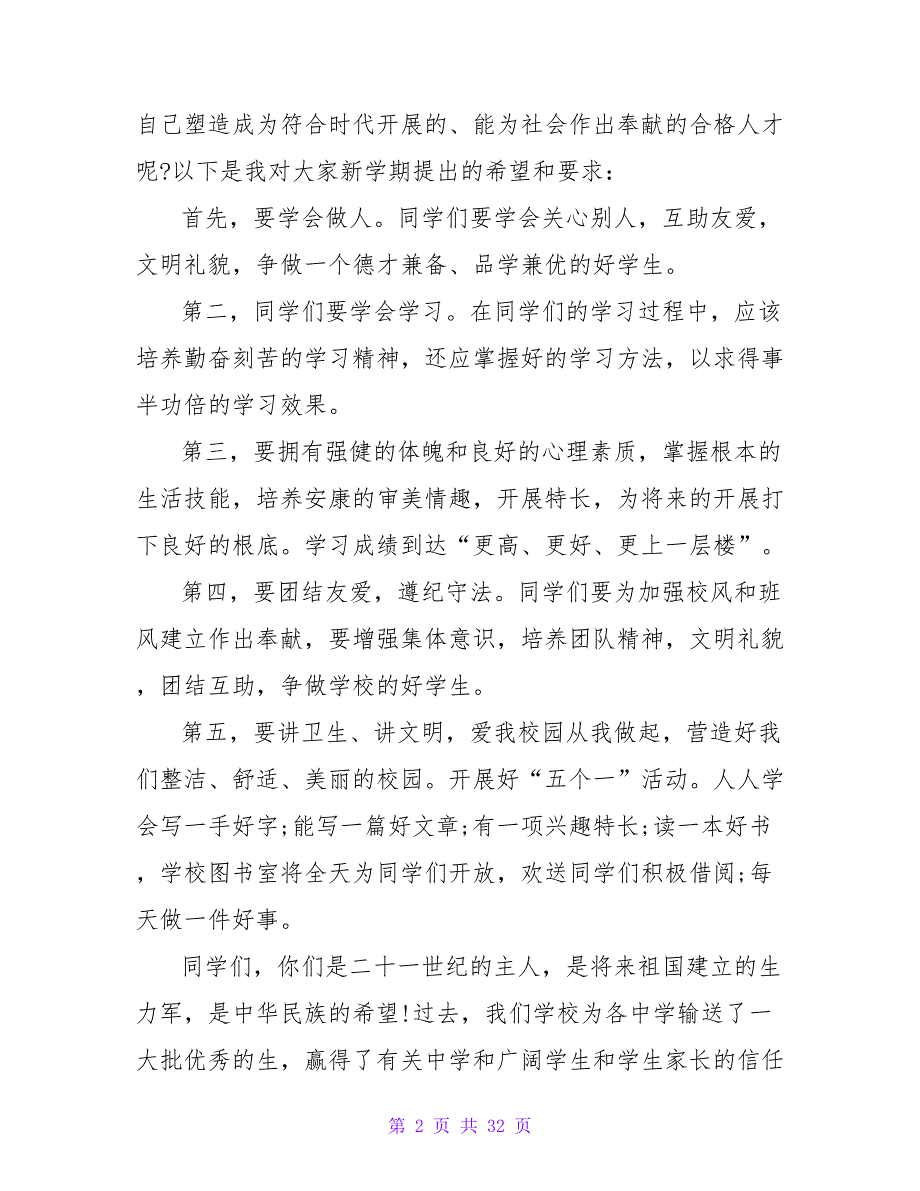 自己塑造成为符合时代开展的、能为社会作出奉献的合格人才
呢?以下是我对大家新学期提出的希望和要求：
首先，要学会做人。同学们要学会关心别人，互助友爱，
文明礼貌，争做一个德才兼备、品学兼优的好学生。
第二，同学们要学会学习。在同学们的学习过程中，应该
培养勤奋刻苦的学习精神，还应掌握好的学习方法，以求得事
半功倍的学习效果。
第三，要拥有强健的体魄和良好的心理素质，掌握根本的
生活技能，培养安康的审美情趣，开展特长，为将来的开展打
下良好的根底。学习成绩到达“更高、更好、更上一层楼”。
第四，要团结友爱，遵纪守法。同学们要为加强校风和班
风建立作出奉献，要增强集体意识，培养团队精神，文明礼貌
，团结互助，争做学校的好学生。
第五，要讲卫生、讲文明，爱我校园从我做起，营造好我
们整洁、舒适、美丽的校园。开展好“五个一”活动。人人学
会写一手好字;能写一篇好文章;有一项兴趣特长;读一本好书
，学校图书室将全天为同学们开放，欢送同学们积极借阅;每
天做一件好事。
同学们，你们是二十一世纪的主人，是将来祖国建立的生
力军，是中华民族的希望!过去，我们学校为各中学输送了一
大批优秀的生，赢得了有关中学和广阔学生和学生家长的信任
第 2 页 共 32 页